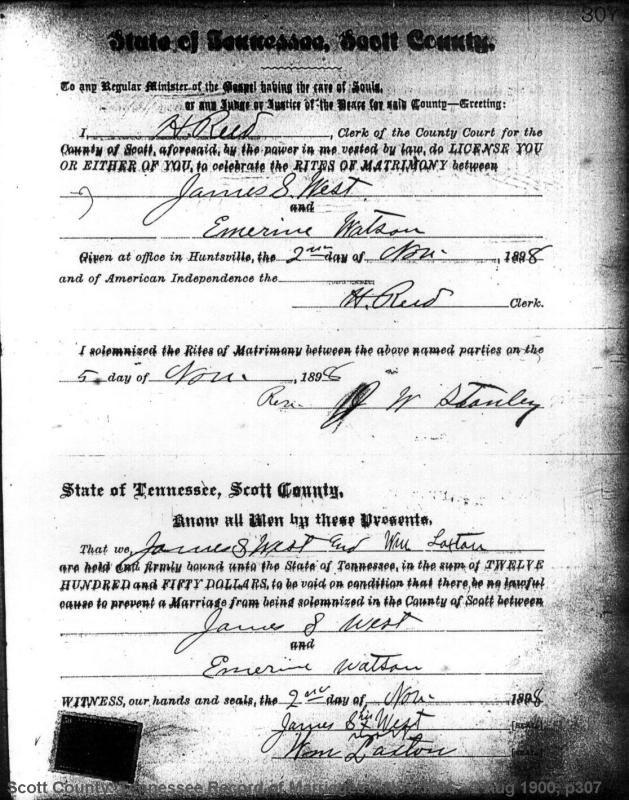 307
State of Tennessee, Scott County.
To any Regular Minister of the Gospel having the care of Souls,
or any Judge or Justice of the Peace for said County—Greeting:
I, H. Reed, Clerk of the County Court for the
County of Scott, aforesaid, by the power in me vested by law, do LICENSE YOU
OR EITHER OF YOU, to celebrate the RITES OF MATRIMONY between
James S. West
and
Emerine Watson
Given at office in Huntsville, the 2nd day of Nov. , 1898
and of American Independence the
H. Reed Clerk.
I solemnized the Rites of Matrimony between the above named parties on the
5 day of Nov. , 1898
Rev. J W Stanley
State of Tennessee, Scott County.
Know all Men by these Presents,
That we, James S West and Wm Laxton
are held and firmly bound unto the State of Tennessee, in the sum of TWELVE
HUNDRED and FIFTY DOLLARS, to be void on condition that there be no lawful
cause to prevent a Marriage from being solemnized in the County of Scott between
James S West
and
Emerine Watson
WITNESS, our hands and seals, the 2nd day of Nov. 1898
James S his x West
Wm Laxton
Scott County, Tennessee Record of Marriages Aug 1900, p307